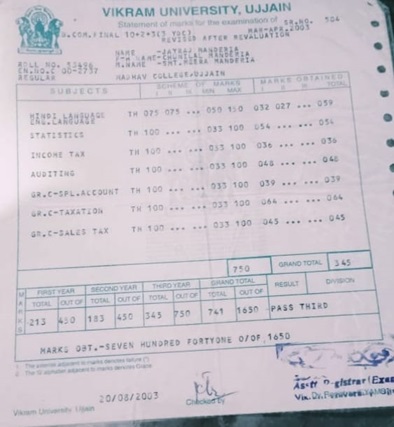 VIKRAM UNIVERSITY, UJJAIN
Statement of marks for the examination of SR.NO. 504
B.COM.FINAL 10+2+3(3 YDC) MAR-APR.2003
REVISED AFTER REVALUATION
NAME -JAYRAJ MANDERIA
F-H NAME-CHUNILAL MANDERIA
M.NAME -SMT.HEERA MANDERIA
ROLL NO.
EN.NO.C 00-2737
REGULAR MADHAV COLLEGE,UJJAIN
SUBJECTS SCHEME OF MARKS MIN MAX MARKS OBTAINED
HINDI LANGUAGE TH 075 075 ... 050 150 032 027 ... 059
ENG.LANGUAGE
STATISTICS TH 100 ... ... 033 100 054 ... ... 054
INCOME TAX TH 100 ... ... 033 100 036 ... ... 036
AUDITING TH 100 ... ... 033 100 048 ... ... 048
GR.C-SPL.ACCOUNT TH 100 ... ... 033 100 039 ... ... 039
GR.C-TAXATION TH 100 ... ... 033 100 064 ... ... 064
GR.C-SALES TAX TH 100 ... ... 033 100 045 ... ... 045
750 GRAND TOTAL 345
MARKS FIRST YEAR SECOND YEAR THIRD YEAR GRAND TOTAL RESULT DIVISION
TOTAL OUT OF TOTAL OUT OF TOTAL OUT OF TOTAL OUT OF
213 450 183 450 345 750 741 1650 PASS THIRD
MARKS OBT.-SEVEN HUNDRED FORTYONE O/OF 1650
20/08/2003
Checked by
Vikram University, Ujjain